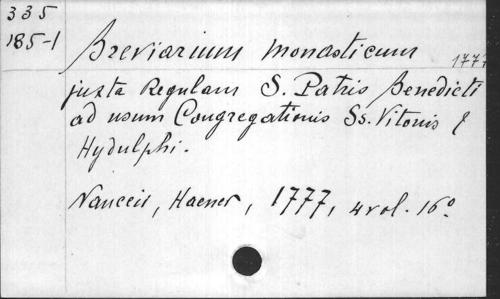 335
185-1
Breviarium monasticum 1777
juxta Regulam S. Patris Benedicti
ad usum Congregationis Ss. Vitonis &
Hydulphi.
Nanceii, Haener, 1777, 4 vol. 16º.